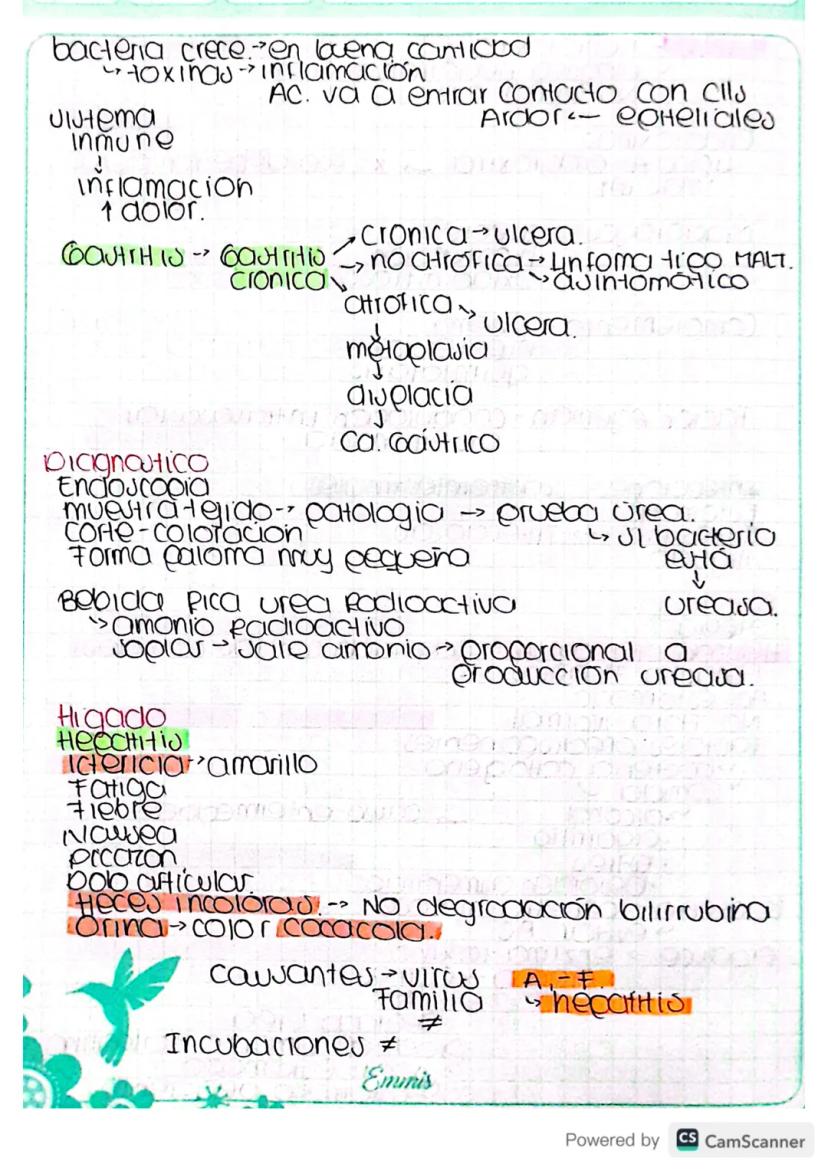 bacteria crece → en buena cantidad
↳ toxinas → inflamación
Ac. va a entrar contacto con clls
Ardor ← epiteliales
sistema
inmune
↓
inflamacion
↑ dolor.
Gastritis → Gastritis cronica
→ cronica → ulcera.
→ no atrofica → Linfoma tipo MALT.
↘ asintomático
atrofica ↘ ulcera.
↓
metaplasia
↓
displacia
↓
Ca. Gástrico
Diagnostico
Endoscopia
muestra tejido → patologia → prueba urea.
corte - coloracion
↳ si bacteria
Forma paloma muy pequeña
está
↓
Bebida rica urea Radioactiva
ureasa.
↳ amonio Radioactivo
soplas → sale amonio → proporcional a
producción ureasa.
Higado
Hepatitis
Ictericia → amarillo
Fatiga
Fiebre
Nausea
picazon
Dolo articular.
Heces incoloras. → No degradación bilirrubina
Orina → color cocacola.
causantes → virus A, - F.
Familia ↳ hepatitis
≠
Incubaciones ≠
Emmis
Powered by CS CamScanner